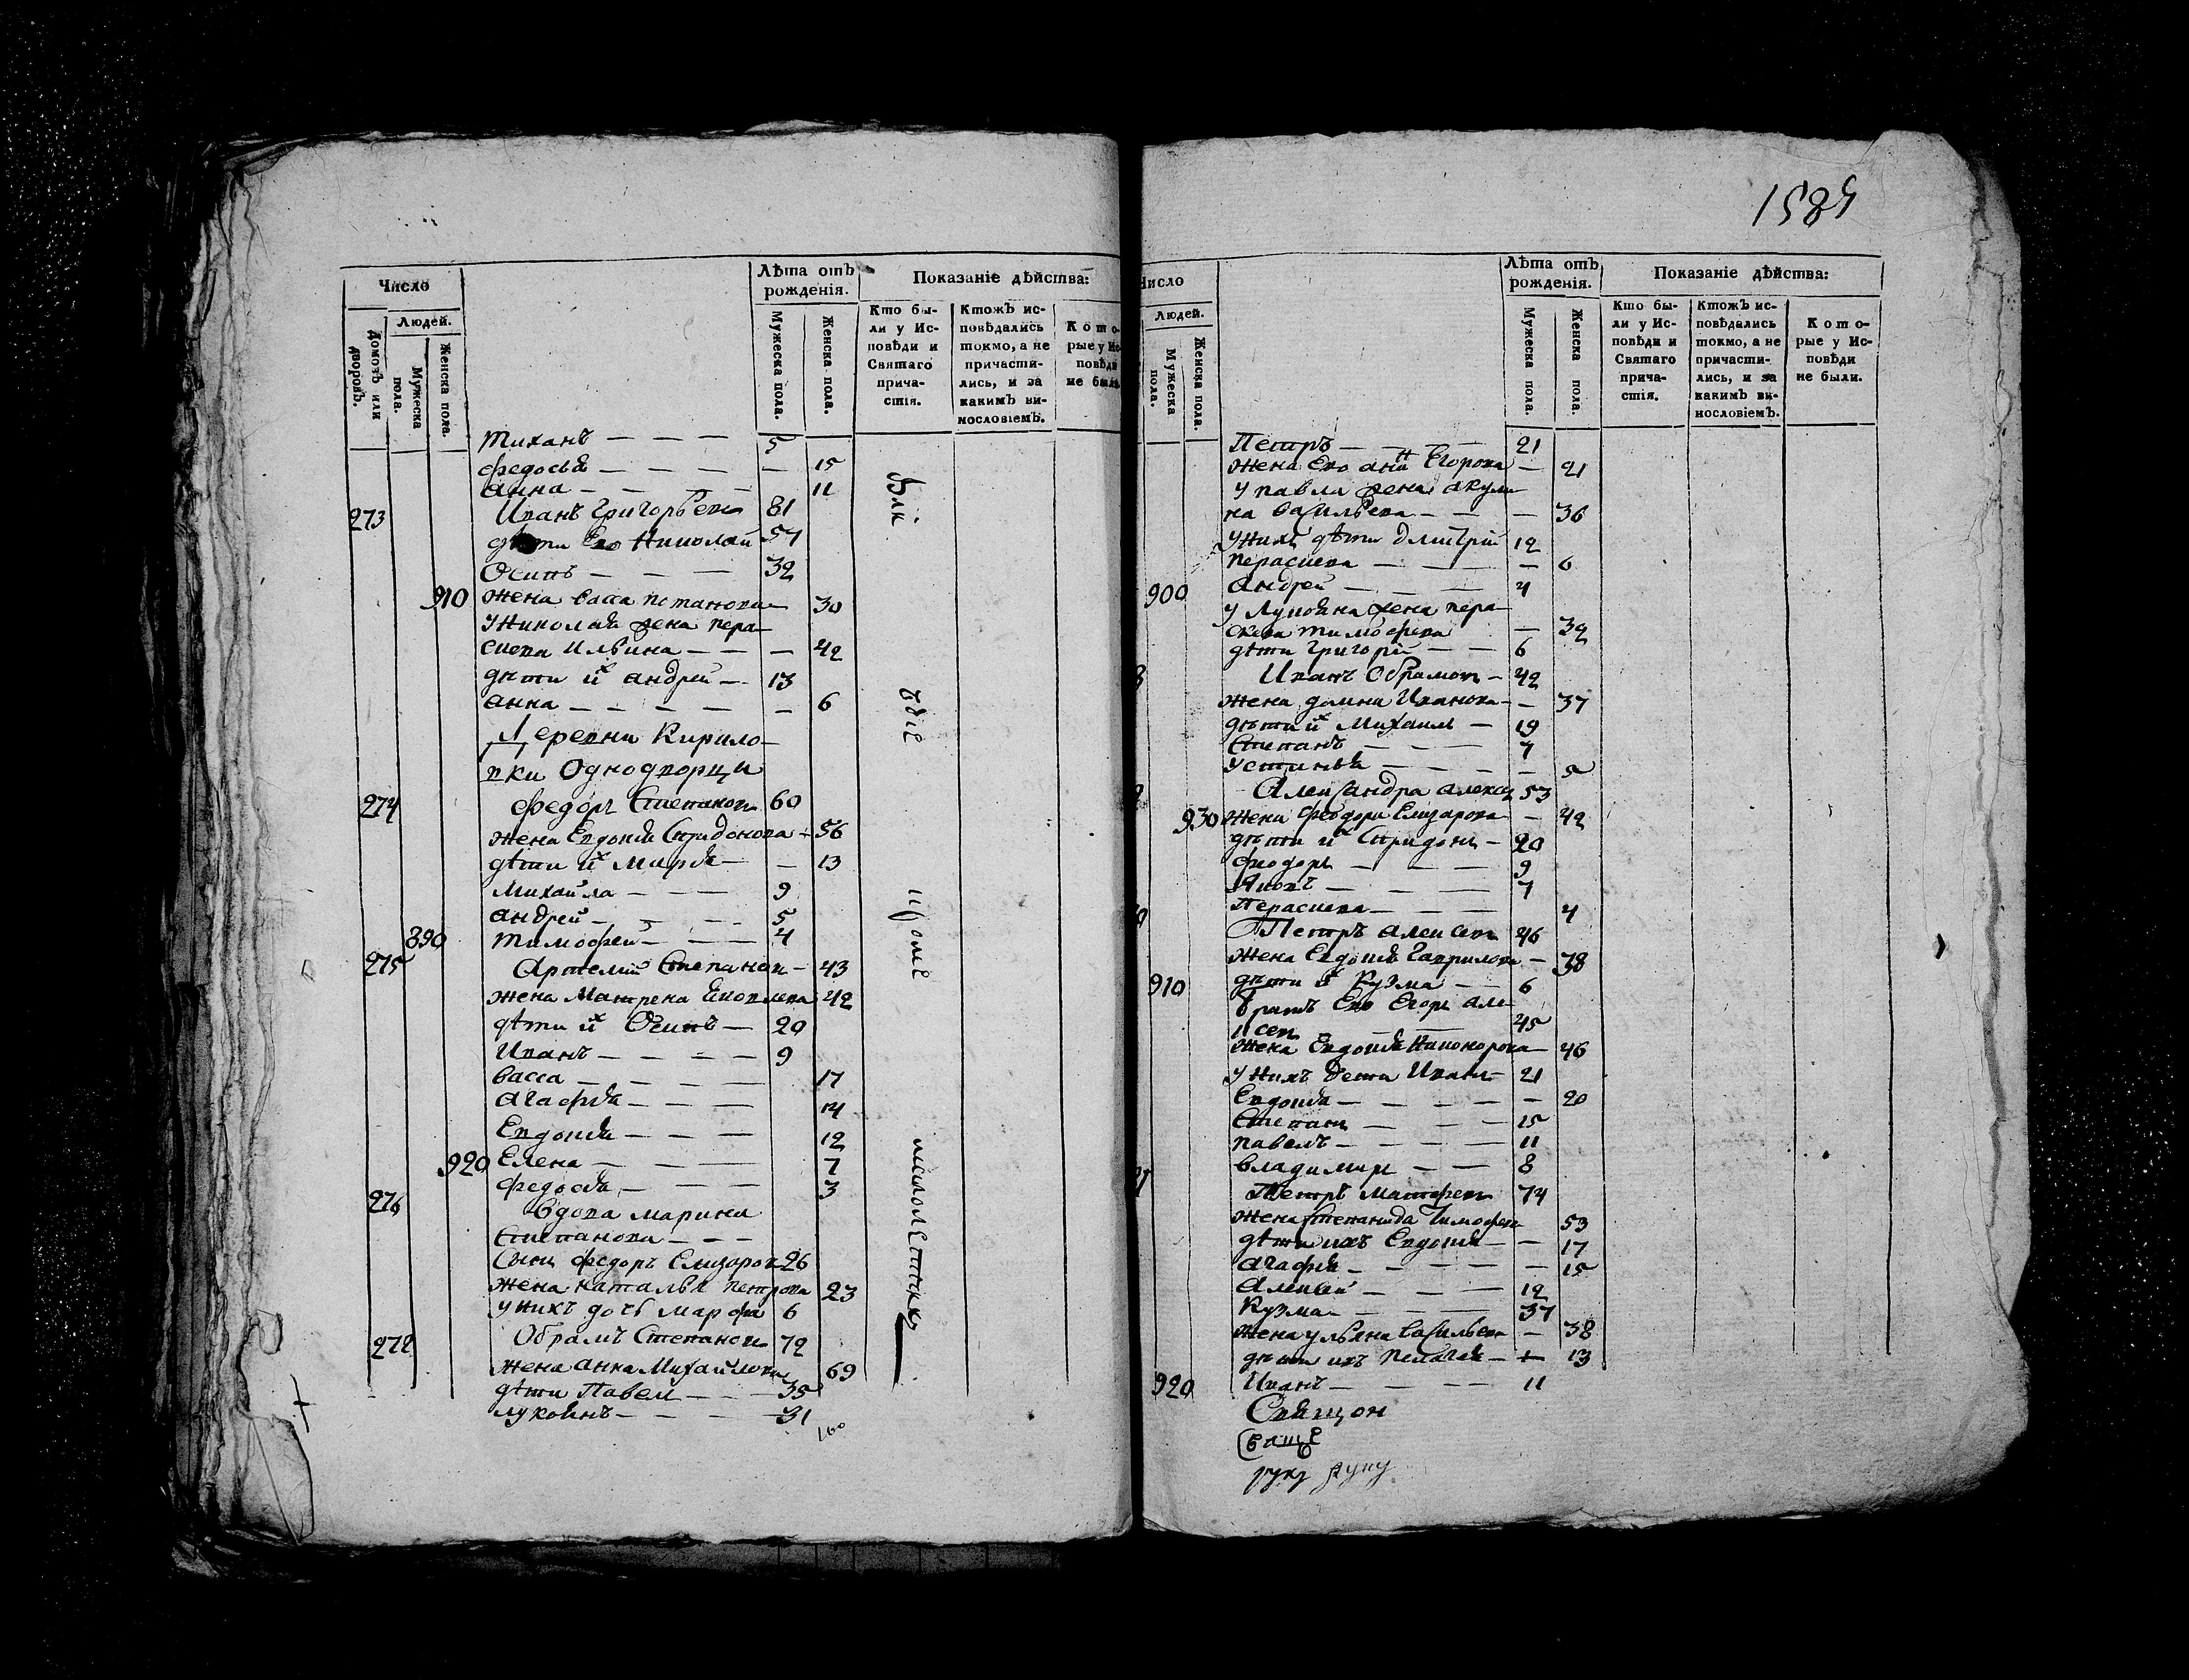 1584
Число
Людей.
Домовъ или дворовъ.
Мужеска пола.
Женска пола.
Лѣта отъ рожденія.
Мужеска пола.
Женска пола.
Показаніе дѣйства:
Кто были у Исповѣди и Святаго причастія.
Ктожъ исповѣдались токмо, а не причастились, и за какимъ винословіемъ.
Которые у Исповѣди не были.
Тиханъ — — — 5
Федосья — — — — 15
Анна — — — 11
273 Иванъ Григорьевъ 81
дѣти Ево Николай 57
Осипъ — — — 32
910 жена Васса Потапова 30
у Николая жена пера
скева Ильина — — — 42
дѣти их андрей — 13
анна — — — — — 6
Деревни Кирило
вки Однодворцы
274 Федоръ Степановъ 60
жена Евдокія Спиридонова — 56
дѣти их Марѳа — — 13
Михайла — — — 9
андрей — — — — 5
890 тимофей — — — 4
275 Артемій Степановъ — 43
жена Матрена Яковлева 42
дѣти их Осипъ — 20
Иванъ — — — — 9
васса — — — — 17
Агафья — — — 14
Евдокія — — — 12
920 Елена — — — 7
Федосья — — — 3
276 Вдова марина
Степанова — — —
Сынъ Федоръ Елизаров 26
жена наталья петрова 23
у нихъ дочь марфа 6
272 Обрамъ Степановъ 72
жена анна Михайлова 69
дѣти Павел — — 35
лукоянъ — — — 31
Вли
эдіе
малолетних
Число
Людей.
Мужеска пола.
Женска пола.
Лѣта отъ рожденія.
Мужеска пола.
Женска пола.
Показаніе дѣйства:
Кто были у Исповѣди и Святаго причастія.
Ктожъ исповѣдались токмо, а не причастились, и за какимъ винословіемъ.
Которые у Исповѣди не были.
Петръ — — — 21
жена Ево анна Егорова — 21
у павла жена акули
на васильева — — — 36
у нихъ дѣти дмитрій 12
Пераскева — — — — 6
900 андрей — — — 4
у Лукояна жена пера
скева тимофеева — 32
дѣти григорій — — 6
Иванъ Обрамовъ — 42
жена домна Иванова — 37
дѣти их Михаил — 19
Степанъ — — — 7
устинья — — — — 5
Александра алексѣ 53
930 жена Феодора Елизарова — 42
дѣти их Спиридонъ — 20
Феодоръ — — — 9
Яковъ — — — 7
Пераскева — — — 4
Петръ алексеевъ 46
жена Евдокія Гаврилова — 38
910 дѣти их Кузма — — 6
братъ Ево Егоръ але
ксеев — — 45
жена Евдокія Никонорова — 46
у нихъ дети Иванъ — 21
Евдокія — — — — — 20
Степанъ — — — 15
павелъ — — — — 11
владимиръ — — 8
Петръ матфеевъ 74
жена Степанида тимофеева 53
дѣти ихъ Евдокія — — 17
агафья — — — — — 15
Алексѣй — — — 12
Кузма — — — — 37
жена ульяна васильева — 38
дѣти ихъ пелагея — — 13
920 Иванъ — — — — 11
Священ
руку руку